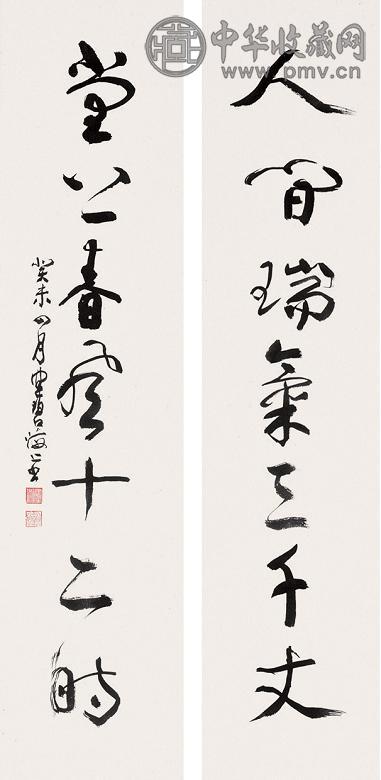 中华收藏网
www.pmv.cn
人間瑞氣三千丈
堂上春風十二時
癸未四月